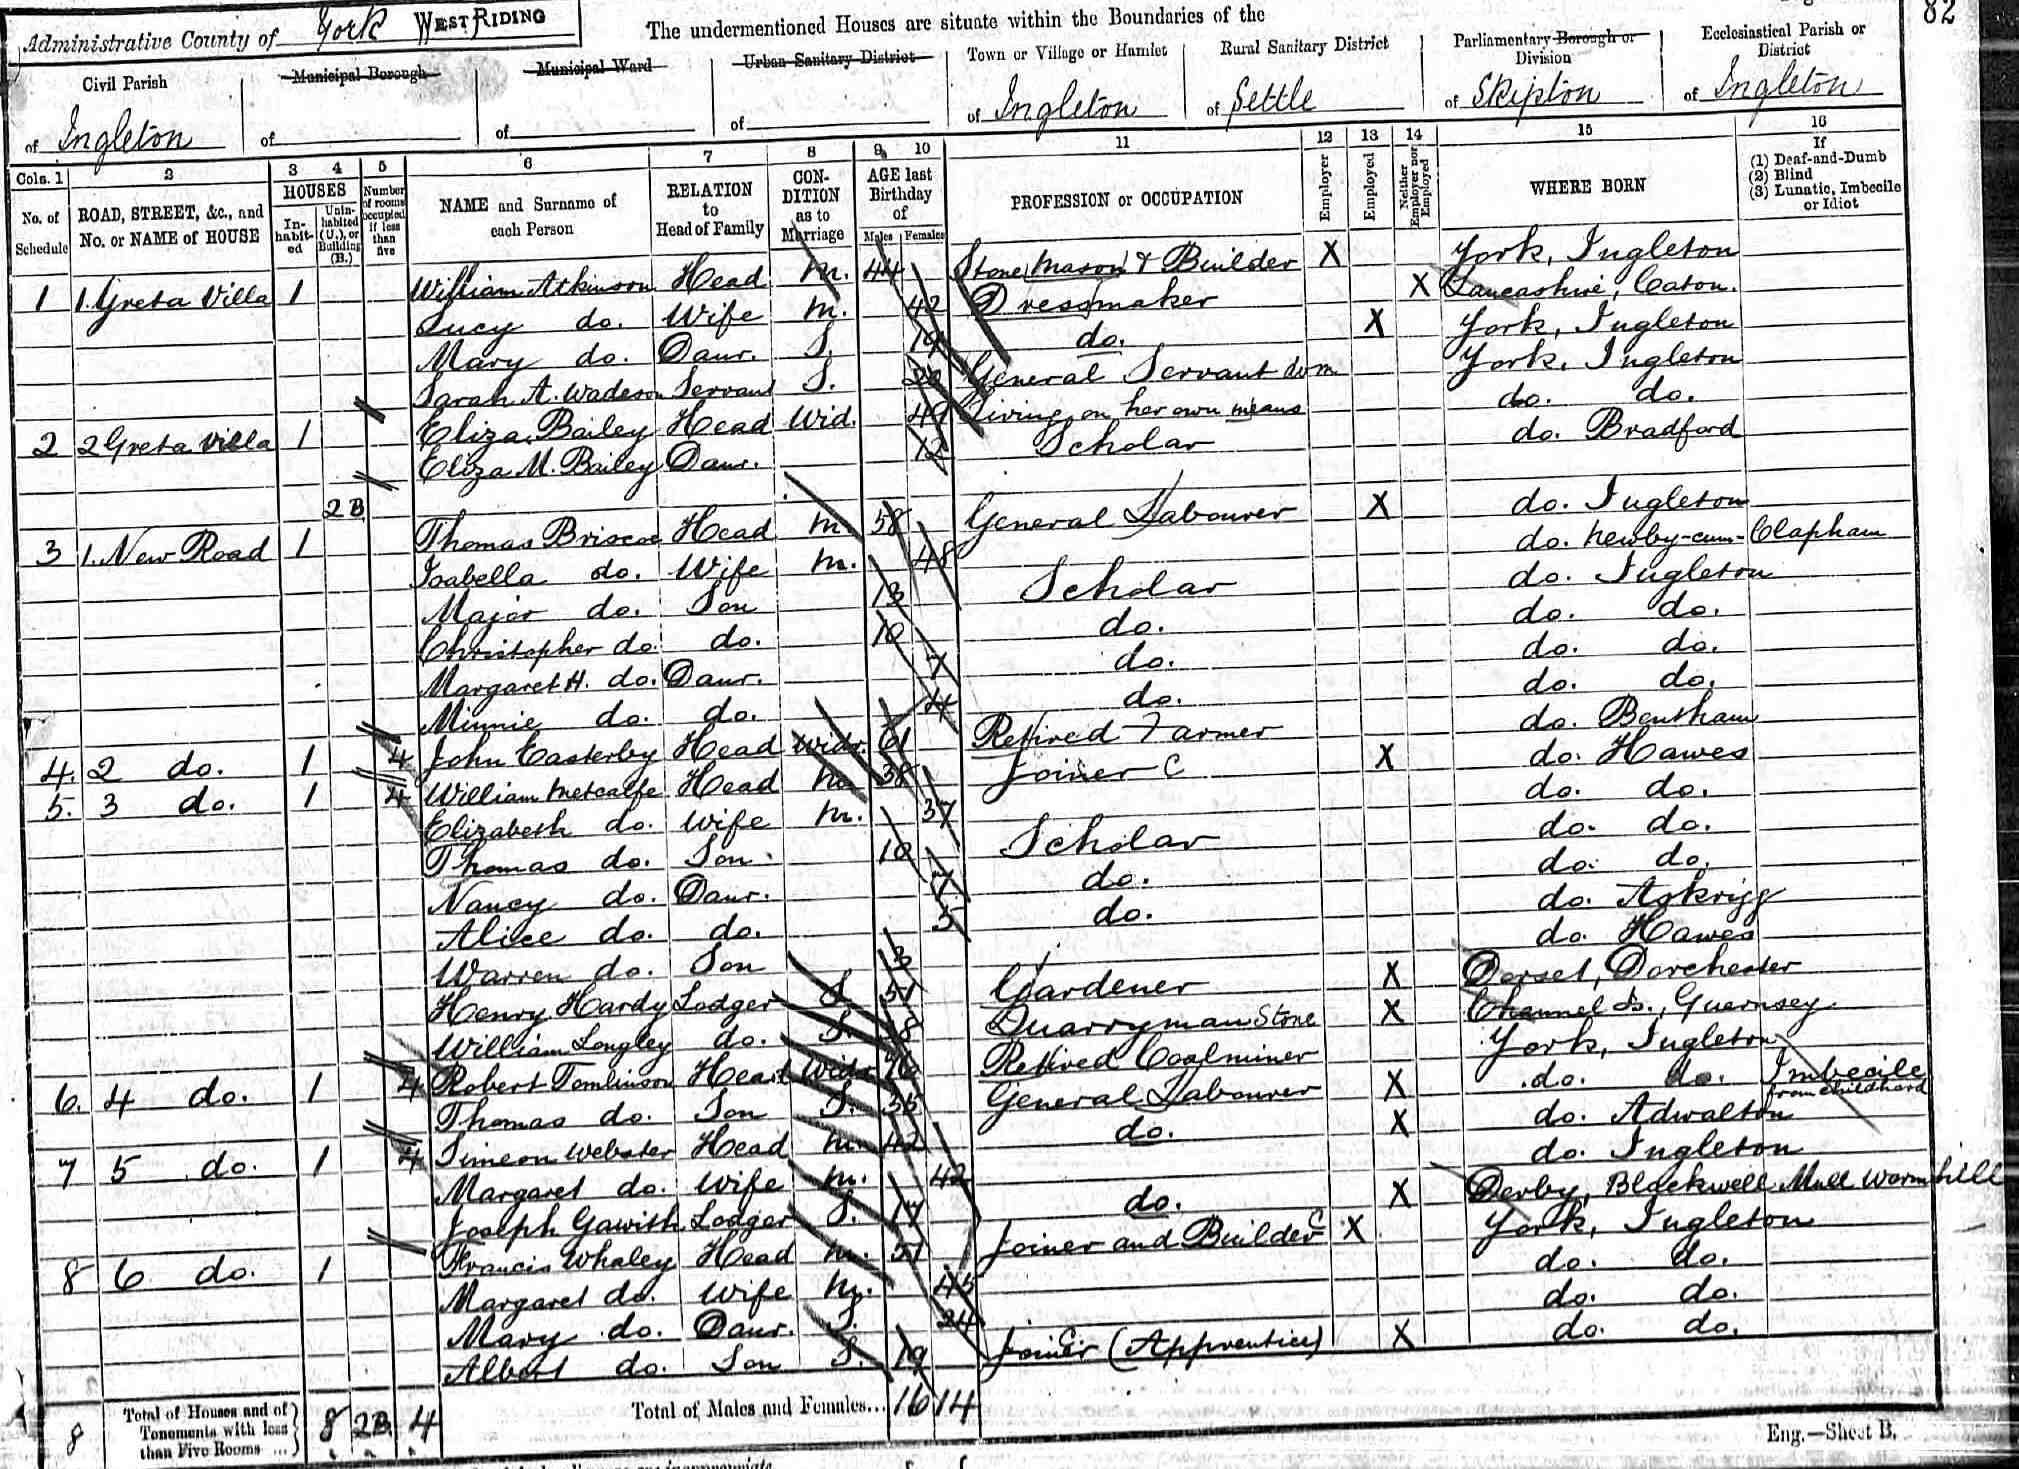 82
Administrative County of York West Riding
The undermentioned Houses are situate within the Boundaries of the
Civil Parish of Ingleton
Municipal Borough of
Municipal Ward of
Urban Sanitary District of
Town or Village or Hamlet of Ingleton
Rural Sanitary District of Settle
Parliamentary Borough or Division of Skipton
Ecclesiastical Parish or District of Ingleton
Cols. 1 2 3 4 5 6 7 8 9 10 11 12 13 14 15 16
No. of Schedule
ROAD, STREET, &c., and No. or NAME of HOUSE
HOUSES
In-habit-ed
Unin-habited (U.), or Building (B.)
Number of rooms occupied if less than five
NAME and Surname of each Person
RELATION to Head of Family
CON-DITION as to Marriage
AGE last Birthday of
Males Females
PROFESSION or OCCUPATION
Employer
Employed
Neither Employer nor Employed
WHERE BORN
If (1) Deaf-and-Dumb (2) Blind (3) Lunatic, Imbecile or Idiot
1 1. Greta Villa 1 William Atkinson Head M. 44 Stone Mason & Builder X York, Ingleton
Lucy do. Wife M. 42 Dressmaker X Lancashire, Caton.
Mary do. Daur. S. 19 do. X York, Ingleton
Sarah A. Wadeson Servant S. General Servant dom York, Ingleton
2 2 Greta Villa 1 Eliza Bailey Head Wid. 49 Living on her own means do. do.
Eliza M. Bailey Daur. 12 Scholar do. Bradford
2B
3 1. New Road 1 Thomas Briscoe Head M. 58 General Labourer X do. Ingleton
Isabella do. Wife M. 48 do. Newby-cum-Clapham
Major do. Son 13 Scholar do. Ingleton
Christopher do. do. 10 do. do. do.
Margaret H. do. Daur. 7 do. do. do.
Minnie do. do. 4 do. do. do.
4. 2 do. 1 4 John Easterby Head Widr. 61 Retired Farmer do. Bentham
5. 3 do. 1 4 William Metcalfe Head M. 38 Joiner C X do. Hawes
Elizabeth do. Wife M. 37 do. do.
Thomas do. Son 10 Scholar do. do.
Nancy do. Daur. 7 do. do. do.
Alice do. do. 5 do. do. Askrigg
Warren do. Son 3 do. Hawes
Henry Hardy Lodger S. 51 Gardener X Dorset, Dorchester
William Longley do. S. Quarryman Stone X Channel Is., Guernsey
6. 4 do. 1 4 Robert Tomlinson Head Widr. 76 Retired Coalminer York, Ingleton
Thomas do. Son S. 35 General Labourer X do. do. Imbecile from childhood
7 5 do. 1 4 Simeon Webster Head M. 42 do. X do. Adwalton
Margaret do. Wife M. 42 do. Ingleton
Joseph Gawith Lodger S. 17 do. X Derby, Blackwell Mill Wormhill
8 6 do. 1 Francis Whaley Head M. 51 Joiner and Builder C X York, Ingleton
Margaret do. Wife M. 45 do. do.
Mary do. Daur. S. 24 do. do.
Albert do. Son S. 19 Joiner (Apprentice) X do. do.
8 Total of Houses and of Tenements with less than Five Rooms ... 8 2B 4 Total of Males and Females... 16 14
Eng.—Sheet B.